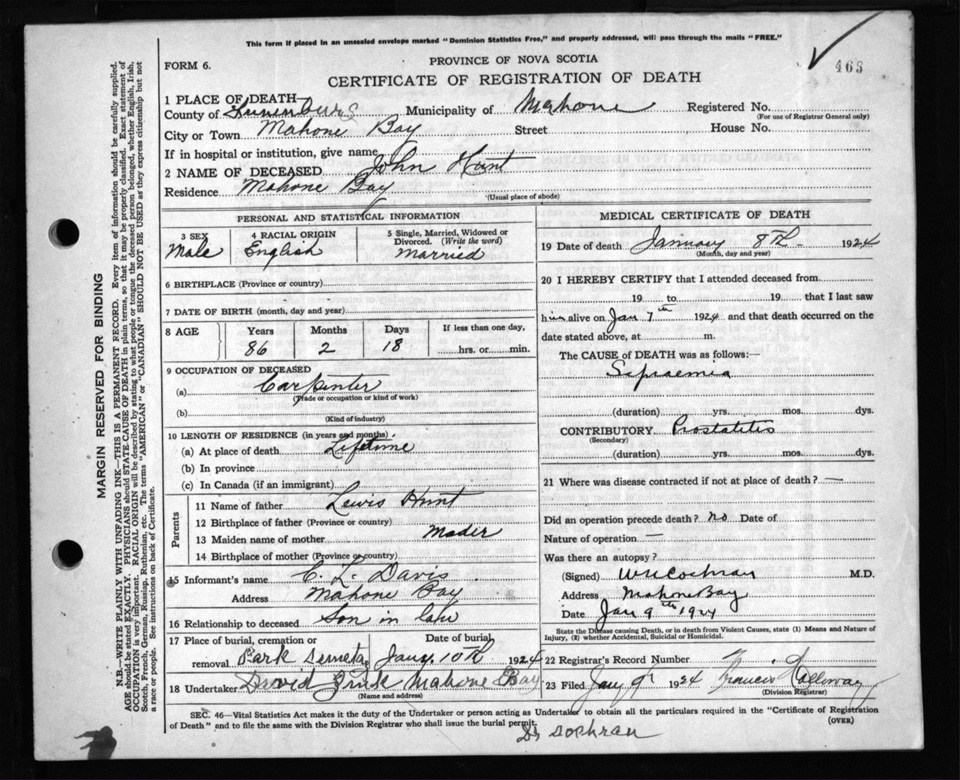 This form if placed in an unsealed envelope marked "Dominion Statistics Free," and properly addressed, will pass through the mails "FREE."
465
PROVINCE OF NOVA SCOTIA
FORM 6.
CERTIFICATE OF REGISTRATION OF DEATH
MARGIN RESERVED FOR BINDING
N.B.—WRITE PLAINLY WITH UNFADING INK—THIS IS A PERMANENT RECORD. Every item of information should be carefully supplied.
AGE should be stated EXACTLY. PHYSICIANS should STATE CAUSE OF DEATH in plain terms, so that it may be properly classified. Exact statement of
OCCUPATION is very important. RACIAL ORIGIN will be described by stating to what people or tongue the deceased person belonged, whether English, Irish,
Scotch, French, German, Russian, Ruthenian, etc. The terms "AMERICAN" or "CANADIAN" SHOULD NOT BE USED as they express citizenship but not
a race or people. See instructions on back of Certificate.
1 PLACE OF DEATH
County of Lunenburg Municipality of Mahone Registered No.
(For use of Registrar General only)
City or Town Mahone Bay Street House No.
If in hospital or institution, give name
2 NAME OF DECEASED John Hunt
Residence Mahone Bay
(Usual place of abode)
PERSONAL AND STATISTICAL INFORMATION
3 SEX
Male
4 RACIAL ORIGIN
English
5 Single, Married, Widowed or
Divorced. (Write the word)
Married
6 BIRTHPLACE (Province or country)
7 DATE OF BIRTH (month, day and year)
8 AGE Years Months Days If less than one day,
86 2 18 hrs. or min.
9 OCCUPATION OF DECEASED
(a) Carpenter
(Trade or occupation or kind of work)
(b)
(Kind of industry)
10 LENGTH OF RESIDENCE (in years and months)
(a) At place of death Lifetime
(b) In province
(c) In Canada (if an immigrant)
Parents
11 Name of father Lewis Hunt
12 Birthplace of father (Province or country)
13 Maiden name of mother Mader
14 Birthplace of mother (Province or country)
15 Informant's name C. L. Davis
Address Mahone Bay
16 Relationship to deceased Son in law
17 Place of burial, cremation or Date of burial
removal Park Jany. 10th 1924
18 Undertaker David Mahone Bay
(Name and address)
MEDICAL CERTIFICATE OF DEATH
19 Date of death January 8th 1924
(Month, day and year)
20 I HEREBY CERTIFY that I attended deceased from
19 to 19 that I last saw
him alive on Jan 7th 1924 and that death occurred on
date stated above, at m.
The CAUSE of DEATH was as follows:—
Sepraemia
(duration) yrs. mos. dys.
CONTRIBUTORY Prostatites
(Secondary)
(duration) yrs. mos. dys.
21 Where was disease contracted if not at place of death? —
Did an operation precede death? no Date of
Nature of operation —
Was there an autopsy?
(Signed) W H Cochran M.D.
Address Mahone Bay
Date Jan 9th 1924
State the Disease causing Death, or in death from Violent Causes, state (1) Means and Nature of
Injury, (2) whether Accidental, Suicidal or Homicidal.
22 Registrar's Record Number
23 Filed Jany 9th 1924 Francis Holloway
(Division Registrar)
SEC. 46—Vital Statistics Act makes it the duty of the Undertaker or person acting as Undertaker to obtain all the particulars required in the "Certificate of Registration
of Death" and to file the same with the Division Registrar who shall issue the burial permit.
(OVER)
Dr Cochran